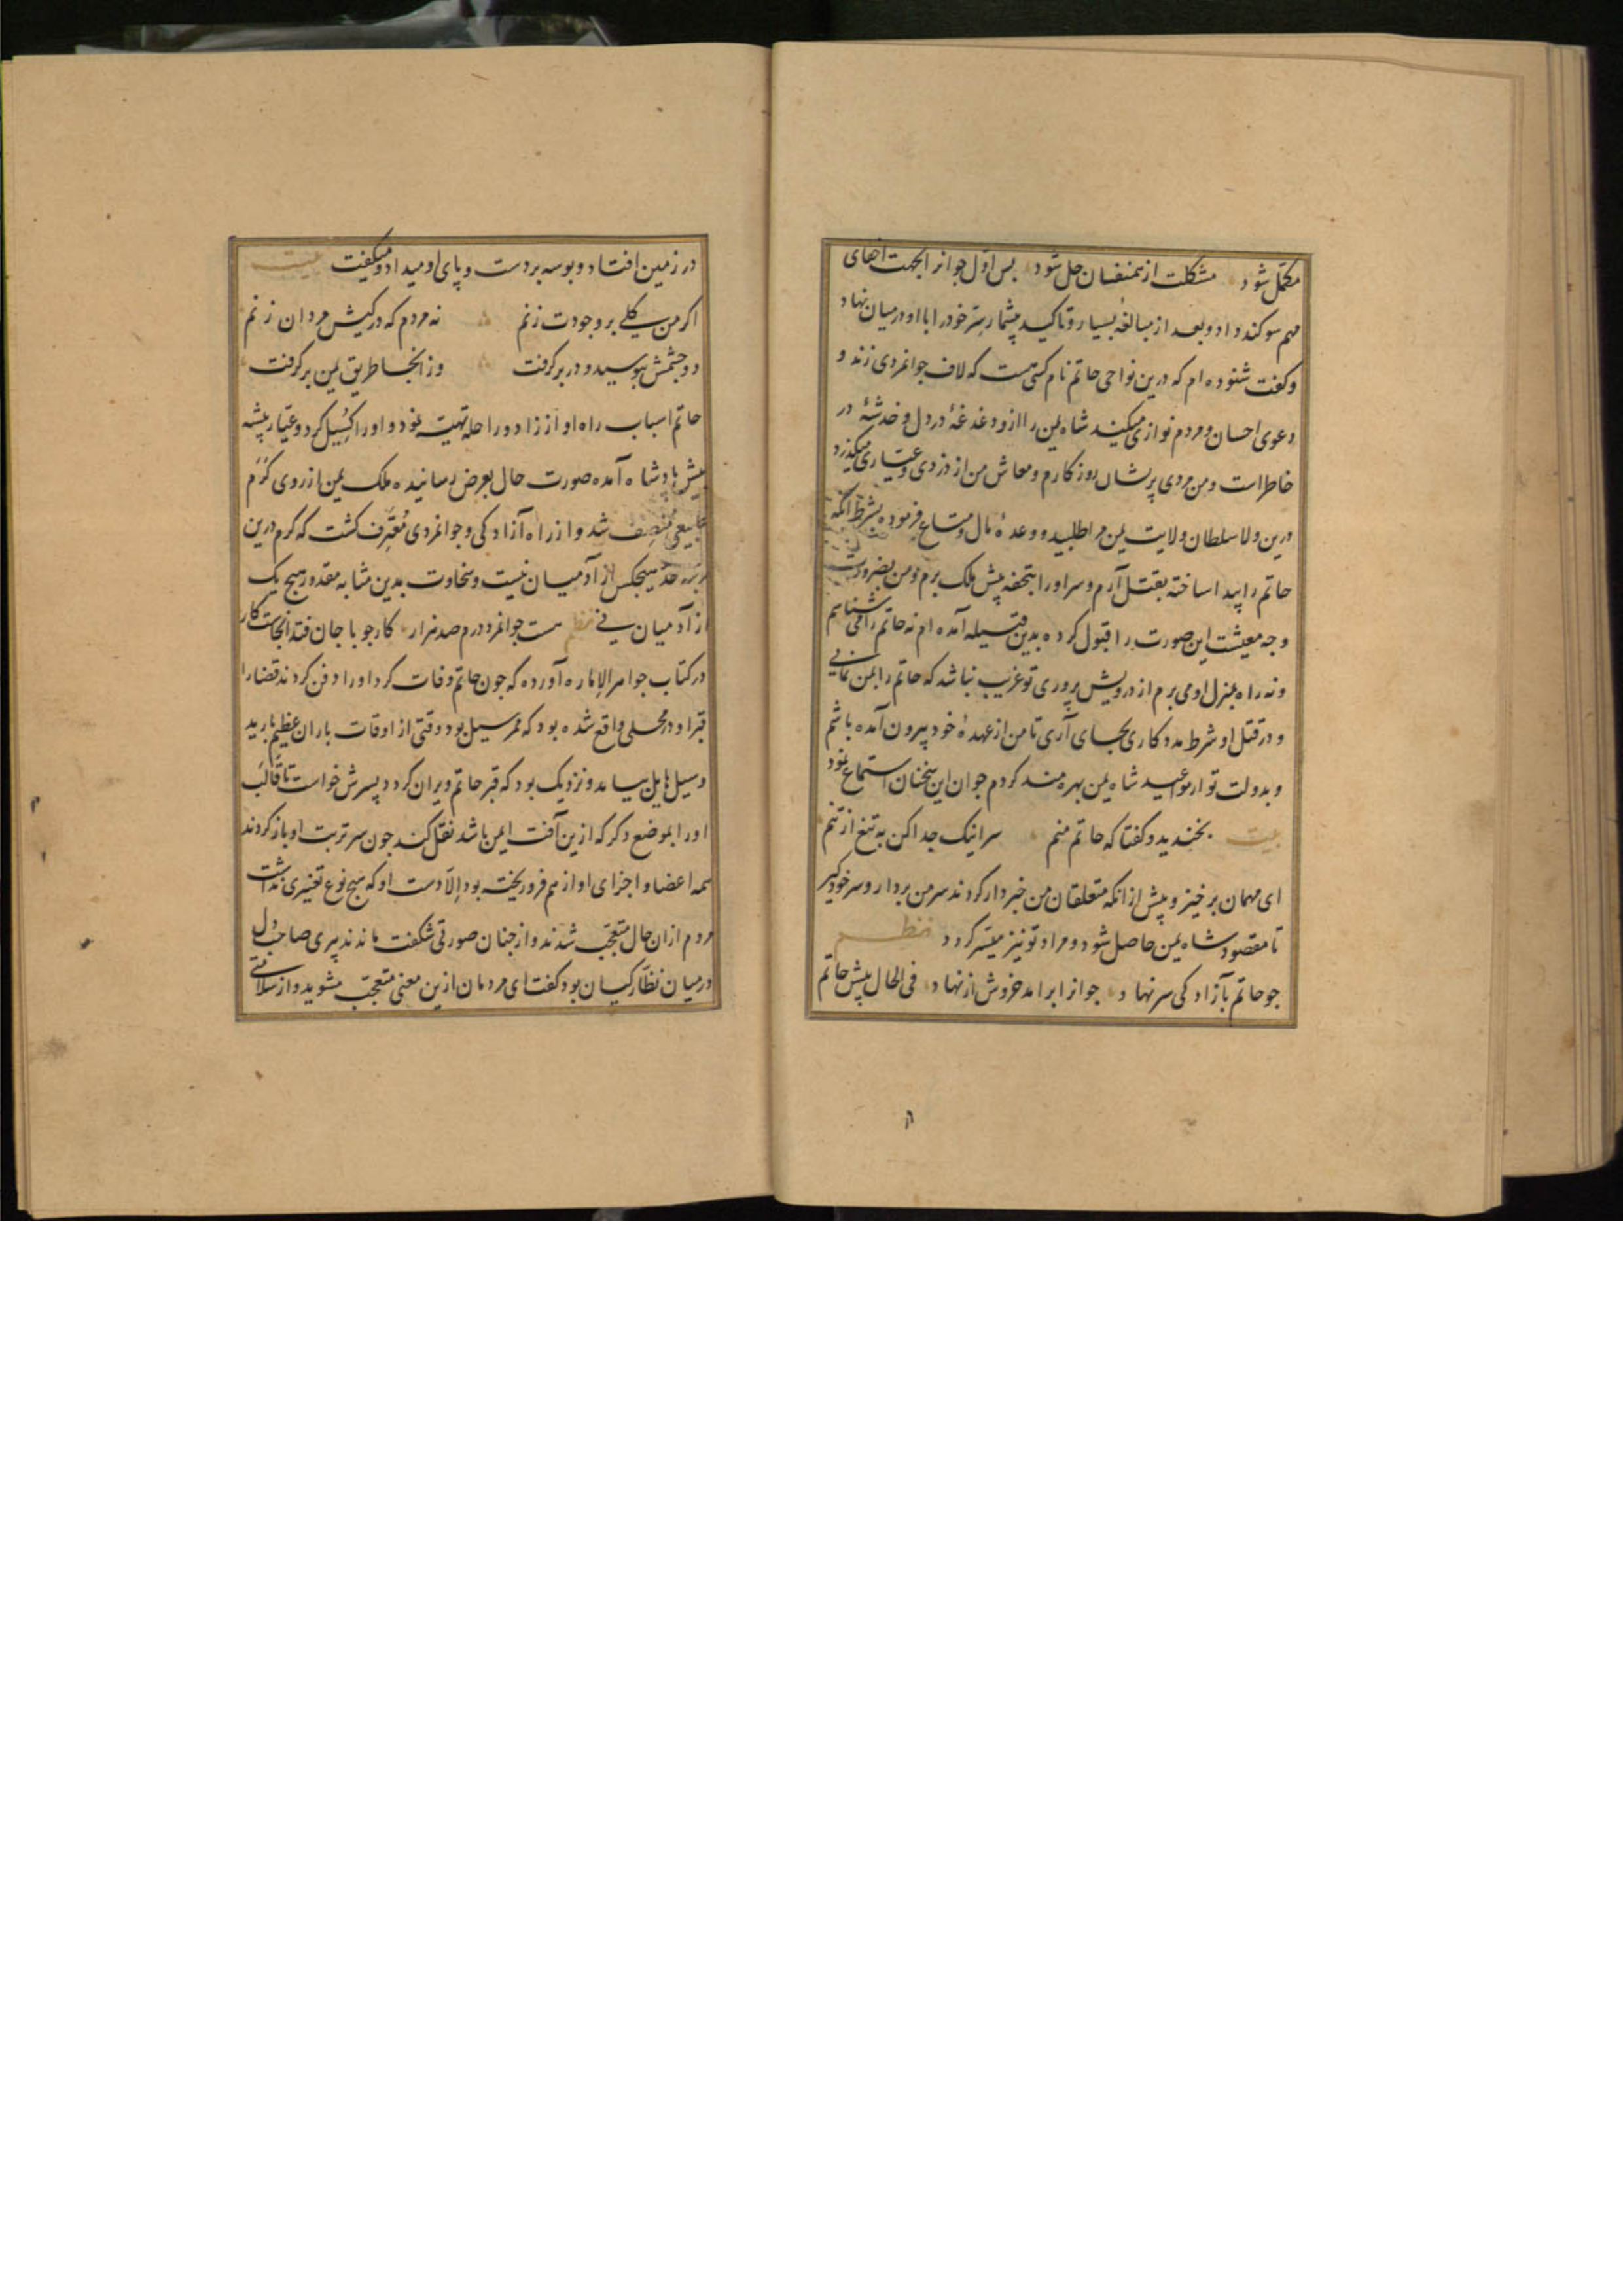 مکمّل شود مشکلت از همنفسان حل شود پس اوّل جوانرا بجهت اخفای
مهم سوکند داد و بعد از مبالغهٔ بسیار و تاکید پیشمار سِرّ خود را با او در میان نهاد
و کفت شنوده ام که درین نواحی حاتم نام کسی ست که لاف جوانمردی زند و
دعوی احسان و مردم نوازی میکند شاه یمن را ازو دغدغهٔ در دل و خدشهٔ در
خاطر است و من مردی پریشان روز کارم و معاش من از دزدی و عیاری میکذرد
درین ولا سلطان ولایت یمن مرا طلبید و وعدهٔ مال و متاع فرموده بشرط آنکه
حاتم را پیدا ساخته بقتل آرم و سر او را بتحفه پیش ملک برم و من بضرورت
وجه معیشت این صورت را قبول کرده بدین قبیله آمده ام نه حاتم را می شناسم
و نه راه بمنزل او می برم از درویش پروری تو غریب نباشد که حاتم را بمن نمایی
و در قتل او شرط مدد کاری بجای آری تا من از عهدهٔ خود بیرون آمده باشم
و بدولت تو از مواعید شاه یمن بهره مند کردم جوان این سخنان استماع نمود
بیت بخندید و کفتا که حاتم منم سر اینک جدا کن به تیغ از تنم
ای مهمان برخیز و پیش از انکه متعلقان من خبردار کردند سر من بردار و سر خود کیر
تا مقصود شاه یمن حاصل شود و مراد تو نیز میسّر کردد نظم
جو حاتم بآزادکی سر نهاد جوانرا برامد خروش از نهاد فی الحال پیش حاتم
در زمین افتاد و بوسه بر دست و پای او میداد و میکفت بیت
اکر من کلی بر وجودت زنم نه مردم که در کیش مردان زنم
دو جشمش ببوسید و در بر کرفت وز انجا طریق یمن بر کرفت
حاتم اسباب راه او از زاد و راحله تهیت نمود و او را کُسیل کرد و عیّار پیشه
پیش پادشاه آمده صورت حال بعرض رسانیده ملک یمن از روی کرم
طبیعی مُنصِف شد و از راه آزادکی و جوانمردی مُعترِف کشت که کرم درین
مرتبه حدّ هیجکس از آدمیان نیست و سخاوت بدین مثابه مقدور هیج یک
از آدمیان نی نظم هست جوانمرد درم صد هزار کار جو با جان فتد انجاست کار
در کتاب جواهر الإماره آورده که جون حاتم وفات کرد او را دفن کردند قضا را
قبر او در محلی واقع شده بود که ممر سیل بود وقتی از اوقات باران عظیم بارید
و سیل هایل بیامد و نزدیک بود که قبر حاتم ویران کردد پسرش خواست تا قالب
او را بموضع دکر که ازین آفت ایمن باشد نقل کند جون سر تربت او باز کردند
همه اعضا و اجزای او از هم فرو ریخته بود اِلاّ دست او که هیج نوع تغیّری نداشت
مردم ازان حال متعجّب شدند و از جنان صورتی شکفت ماندند پیری صاحب دل
در میان نظّارکیان بود کفت ای مردمان ازین معنی متعجّب مشوید و از سلامتی